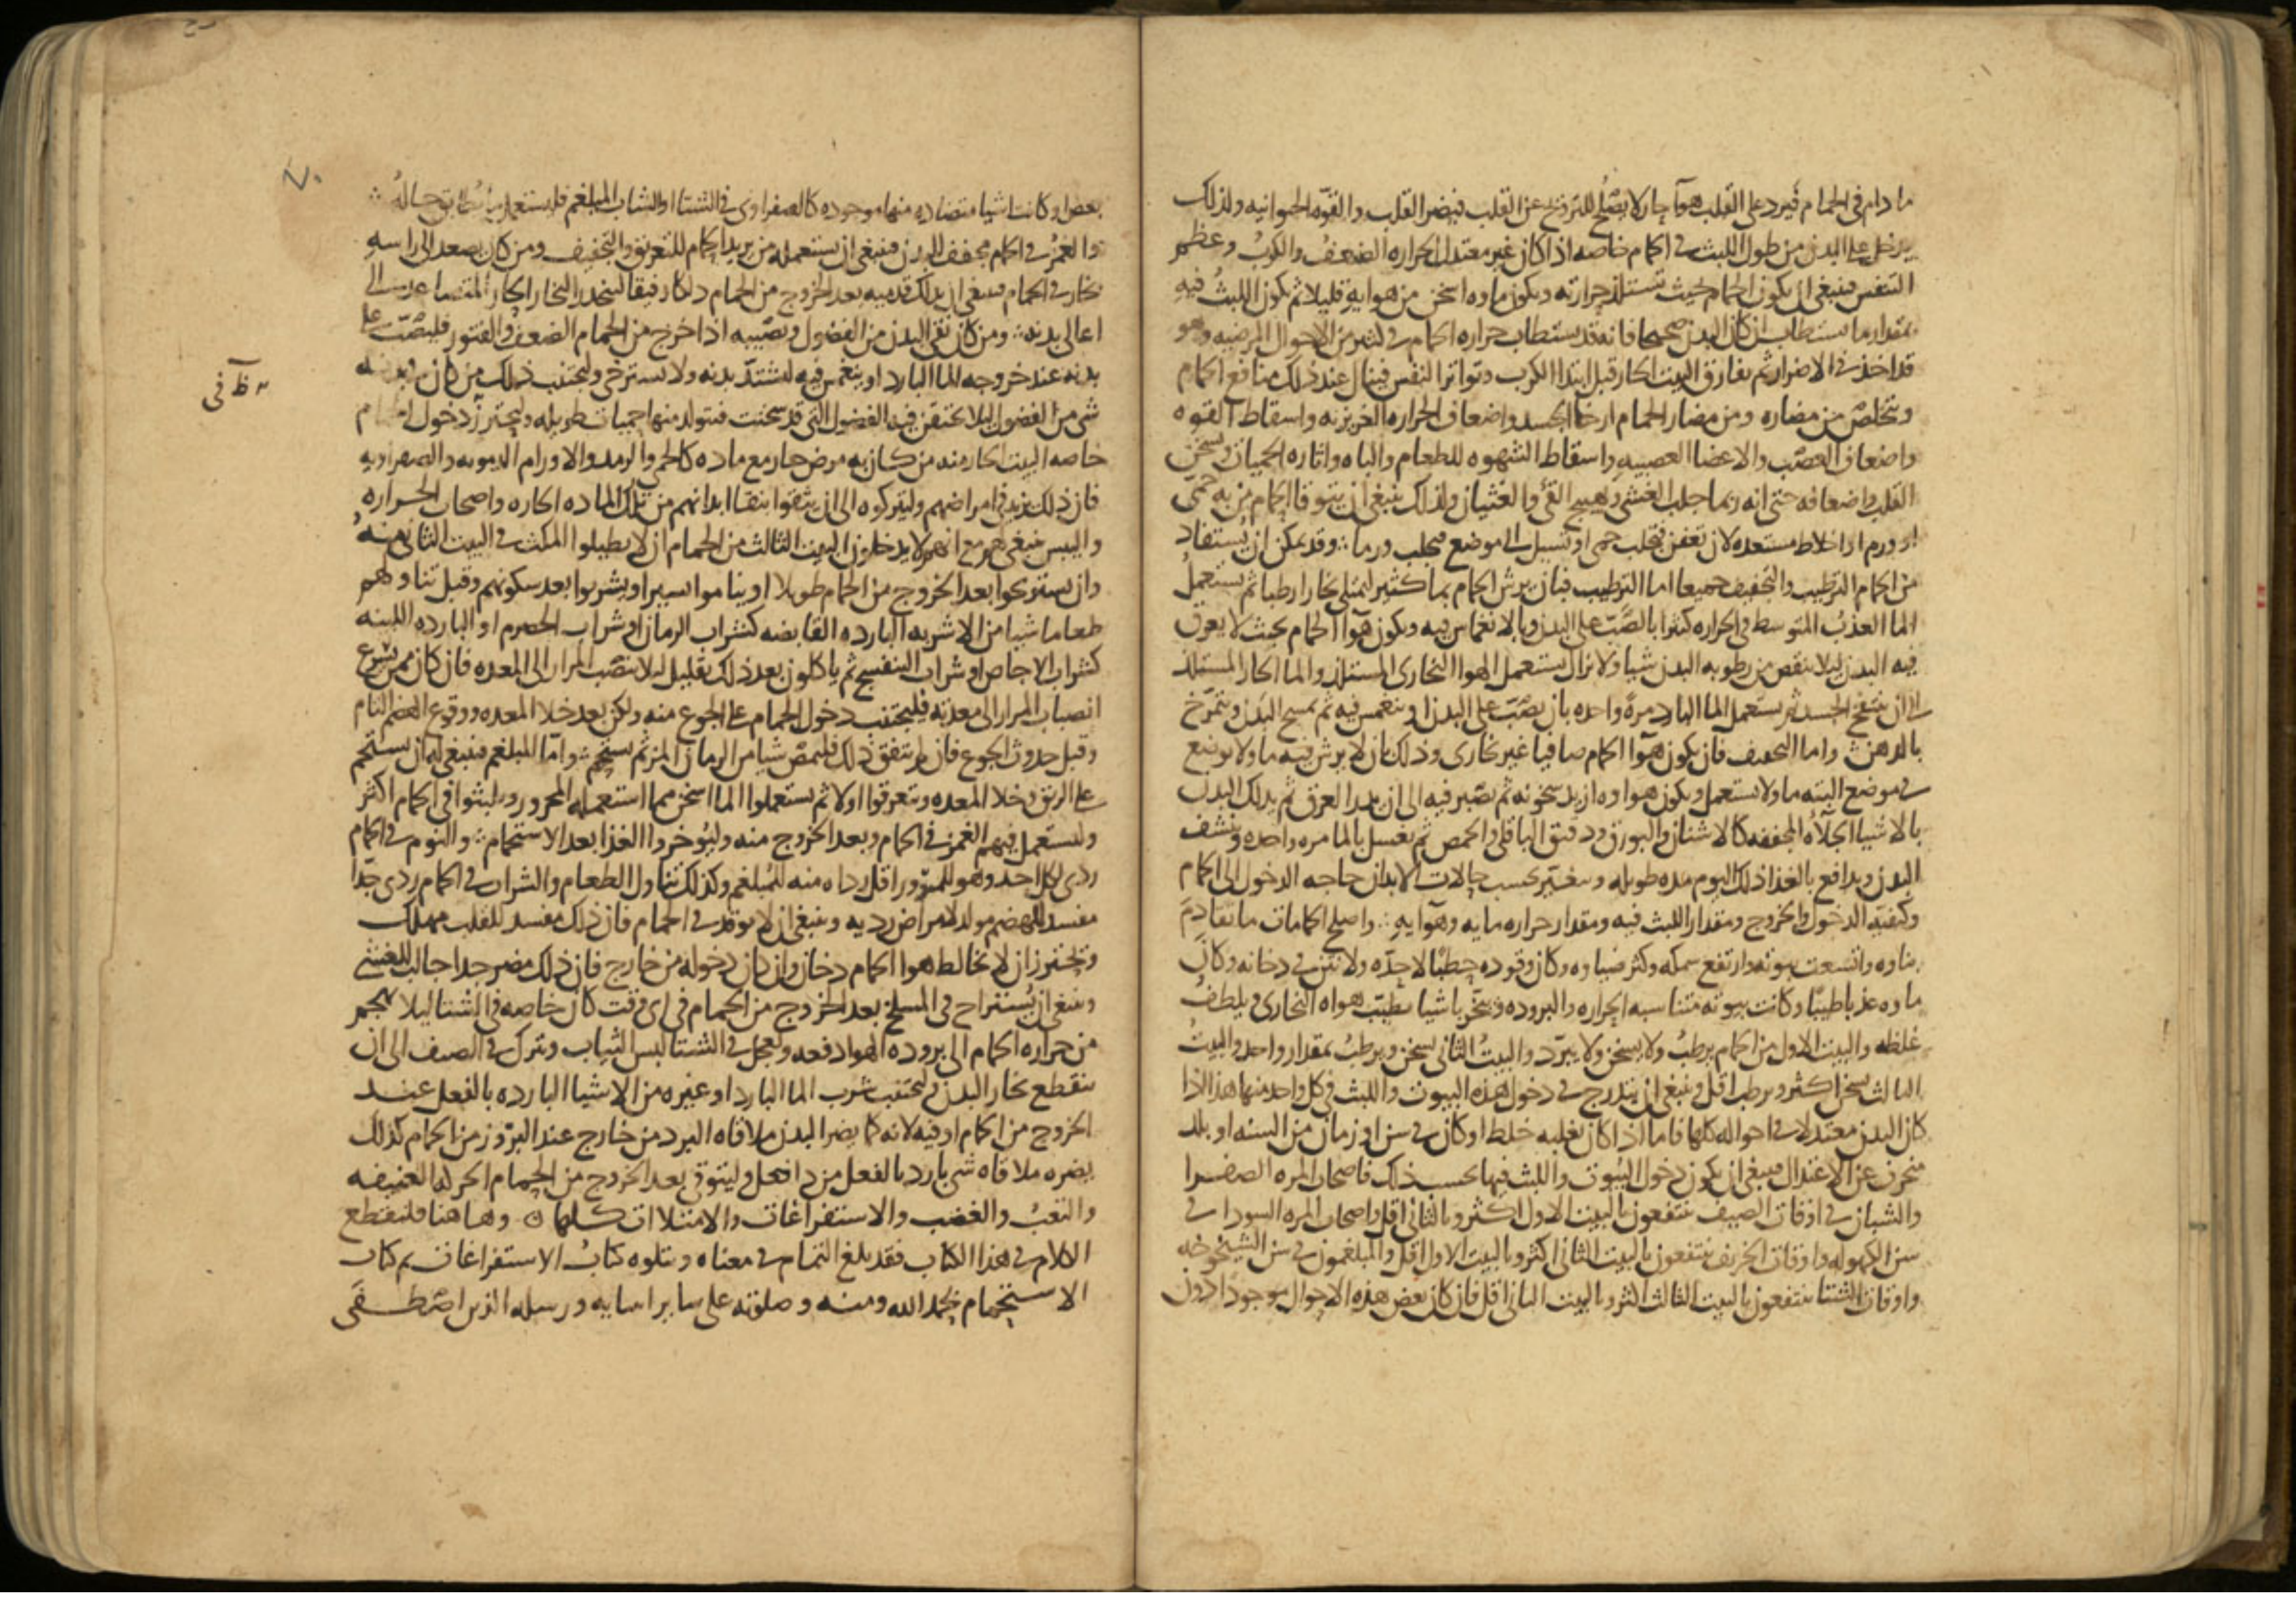 ما دام فى الحمام فيرد على القلب هوآ حار لا يصلح للترويح عن القلب فيضر القلب والقوّه الحيوانيه ولذلك
يدخل على البدن من طول اللبث فى الحمام خاصه اذا كان غير معتدل الحراره الضعفُ والكربُ وعظم
التنفس فينبغى ان يكون الحمام بحيث تستلذ حرارته ويكون ماوه اسخن من هوايه قليلا ثم يكون اللبثُ فيه
بمقدار ما يستطاب ان كان البدن صحيحا فانه قد يستطاب حراره الحمام فى كثير من الاحوال المرضيه وهو
قد اخذ فى الاضرار ثم يفارق البيت الحار قبل ابتدا الكرب وتواتر النفس فينال عند ذلك منافع الحمام
ويتخلص من مضاره ومن مضار الحمام ارخا الجسد واضعاف الحراره الغريزيه واسقاط القوه
واضعاف العصب والاعضا العصبيه واسقاط الشهوه للطعام والباه واثاره الحميات وتسخن
القلب واضعافه حتى انه ربما جلب الغشى وتهييج القئ والغثيان ولذلك ينبغى ان يتوقا الحمام من به حمى
او ورم او اخلاط مستعده لان تعفن فتجلب حمى او تسيل الى موضع فتجلب ورما وقد يمكن ان يُستفاد
من الحمام الترطيب والتجفيف جميعا اما الترطيب فبان يرش الحمام بما كثير ليمتلى بخارا رطبا ثم يستعمل
الما العذبُ المتوسط فى الحراره كثيرا بالصّب على البدن وبالانغماس فيه ويكون هوآ الحمام بحيث لا يعرق
فيه البدن ليلا ينقص من رطوبه البدن شيا ولا يزال يستعمل الهوا البخارى المستلذ والما الحار المستلذ
الى ان ينتفخ الجسد ثم يستعمل الما البارد مرةً واحده بان يصبّ على البدن او ينغمس فيه ثم يمسح البدن ويتمرّخ
بالدهن واما التجفيف فان يكون هوآ الحمام صافيا غير بخارى وذلك بان لا يرش فيه ما ولا يوضع
فى موضع البته ما ولا يستعمل ويكون هواوه ازيد سخونه ثم يصبر فيه الى ان يبدا العرق ثم يدلك البدن
بالاشيا الجلآءُ المجففه كالاشنان والبورق ودقيق الباقلى والحمص ثم يغسل بالما مره واحده وينشف
البدن ويدافع بالغذا ذلك اليوم مده طويله ويتغيّر بحسب حالات الابدان حاجه الدخول الى الحمام
وكيفيه الدخول والخروج ومقدار اللبث فيه ومقدار حراره مايه وهوآيه واصلح الحمامات ما تقادمَ
بناوه واتسعت بيوته وارتفع سمكه وكثر ضياوه وكان وقوده حطبًا لا حِدّه ولا نتن فى دخانه وكان
ماوه عذبا طيبًا وكانت بيوته متناسبه الحراره والبروده وبخّر باشيا تطيّب هواه البخارى ويلطفُ
غلظه والبيت الاول من الحمام يرطبُ ولا يسخن ولا يبرّد والبيتُ الثانى يسخن ويرطبُ بمقدار واحد والبيت
الثالث يسخن اكثر ويرطب اقل وينبغى ان يتدرج فى دخول هذه البيوت واللبث فى كل واحد منها هذا اذا
كان البدن معتدلا فى احواله كلها فاما اذا كان يغلبه خلط او كان فى سن او زمان من السنه او بلد
منحرف عن الاعتدال فينبغى ان يكون دخول البيوت واللبث فيها بحسب ذلك فاصحاب المره الصفرا
والشبان فى اوقات الصيف ينتفعون بالبيت الاول اكثر وبالثانى اقل واصحاب المره السودا فى
سن الكهوله واوقات الخريف ينتفعون بالبيت الثانى اكثر وبالبيت الاول اقل والمبلغمون فى سن الشيخوخه
واوقات الشتا ينتفعون بالبيت الثالث اكثر وبالبيت الثانى اقل فان كان بعض هذه الاحوال موجودًا دون
٧٠
بعض او كانت اشيا متضاده منها موجوده كالصفراوى فى الشتا او الشاب المبلغم فليستعمل ما يُطابق حالهُ
والغمزُ فى الحمام مجفف للبدن فينبغى ان يستعمله من يريد الحمام للتعريق والتجفيف ومن كان يصعد الى راسه
بخار فى الحمام فينبغى ان يدلك قدميه بعد الخروج من الحمام دلكا رفيقا لينحدر البخار الحار المتصاعد الى
اعالى بدنه ومن كان نقى البدن من الفضول ويصيبه اذا خرج من الحمام الضعف والفتور فليصّب على
بدنه عند خروجه الما البارد او ينغمس فيه ليشتدّ بدنه ولا يسترخى وليجتنب ذلك من كان فى بدنه
ـ ظ فى
شى من الفضول ليلا تحتقن فيه الفضول التى قد سخنت فيتولد منها حميات طويله وليحترز دخول الحمام
خاصه البيت الحار منه من كان به مرض حار مع ماده كالحمى والرمد والاورام الدمويه والصفراويه
فان ذلك يزيد فى امراضهم وليتركوه الى ان يثقوا بنقا ابدانهم من تلك الماده الحاره واصحاب الحراره
واليبس فينبغى لهم مع انهم لا يدخلون البيت الثالث من الحمام ان لا يطيلوا المكث فى البيت الثانى منهُ
وان يستريحوا بعد الخروج من الحمام طويلا او يناموا يسيرا ويشربوا بعد سكونهم وقبل تناولهم
طعاما شيا من الاشربه البارده القابضه كشراب الرمان او شراب الحصرم او البارده اللينه
كشراب الاجاص او شراب البنفسج ثم ياكلون بعد ذلك بقليل ليلا ينصّب المرار الى المعده فان كان ممن يسرع
انصباب المرار الى معدته فليجتنب دخول الحمام على الجوع منه ولكن بعد خلا المعده ووقوع الهضم التام
وقبل حدوث الجوع فان لم يتفق ذلك فليمصّ شيا من الرمان المز ثم يستحم واما المبلغم فينبغى له ان يستحم
على الريق وخلا المعده ويتعرقوا اولا ثم يستعملوا الما اسخن مما استعمله المحرور ويلبثوا فى الحمام اكثر
وليستعمل فيهم الغمز فى الحمام وبعد الخروج منه وليُوخروا الغذا بعد الاستحمام والنوم فى الحمام
ردى لكل احد وهو للممرّور اقل رداه منه للمُبلغم وكذلك تناول الطعام والشراب فى الحمام ردى جدًا
مفسد للهضم مولد لامراض رديه وينبغى ان لا يوقد فى الحمام فان ذلك مفسد للقلب مهلك
وليحترز ان لا يخالط هوا الحمام دخان وان كان دخوله من خارج فان ذلك مضر جدا جالب للغشى
وينبغى ان يُستراح فى المسلخ بعد الخروج من الحمام فى اى وقت كان خاصه فى الشتا ليلا يهجم
من حراره الحمام الى بروده الهوا دفعه وليعجل فى الشتا لبس الثياب ويترك فى الصيف الى ان
ينقطع بخار البدن وليجتنب شرب الما البارد او غيره من الاشيا البارده بالفعل عند
الخروج من الحمام او فيه لانه كما يضر البدن ملاقاه البرد من خارج عند البرّوز من الحمام كذلك
يضره ملاقاه شى بارد بالفعل من داخل وليتوق بعد الخروج من الحمام الحركه العنيفه
والتعبُ والغضب والاستفراغات والامتلاات كلها ۞ وهاهنا فلنقطع
الكلام فى هذا الكتاب فقد بلغ التمام فى معناه ويتلوه كتابُ الاستفراغات تم كتاب
الاستحمام بحمد الله ومنه وصلوته على ساير انبيايه ورسله الذين اصطفى